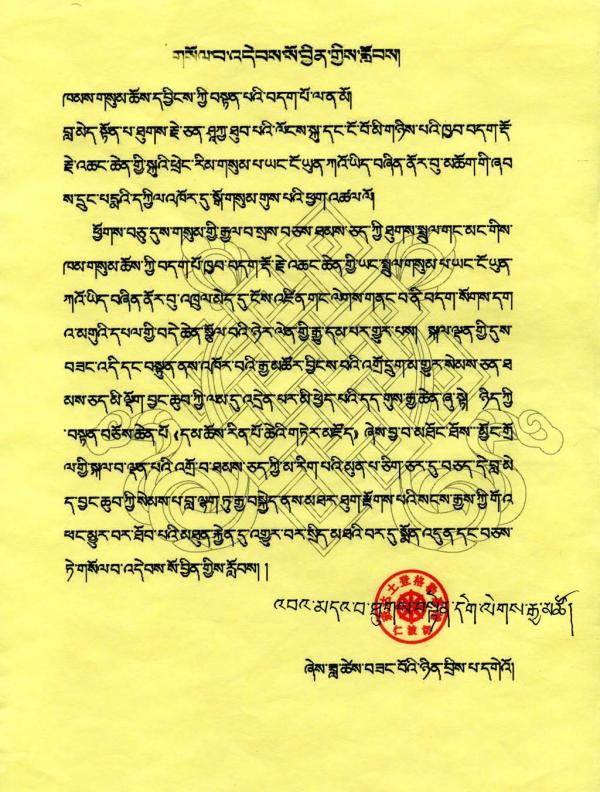 གསོལ་བ་འདེབས་སོ་བྱིན་གྱིས་རློབས།
ཁམས་གསུམ་ཆོས་ད་བྱིངས་ཀྱི་བསྟན་པའི་བདག་པོ་ལ་ན་མོ།
བླ་མེད་སྟོན་པ་ཐུགས་རྗེ་ཅན་ཤཱཀྱ་ཐུབ་པའི་ལོངས་སྐུ་དང་ངོ་བོ་མི་གཉིས་པའི་ཁྱབ་བདག་རྡོ
རྗེ་འཆང་ཆེན་གྱི་སྐུའི་ཕྲེང་རིམ་གསུམ་པ་ཡང་ངོ་ཡུན་ཀའོ་ཡིད་བཞིན་ནོར་བུ་མཆོག་གི་ཞབ
ས་དྲུང་པདྨའི་དཀྱིལ་འཁོར་དུ་སྒོ་གསུམ་གུས་པའི་ཕྱག་འཚལ་ལོ།
ཕྱོགས་བཅུ་དུས་གསུམ་གྱི་རྒྱལ་བ་སྲས་བཅས་ཐམས་ཅད་ཀྱི་ཐུགས་སྤྲུལ་གང་མང་གིས་
ཁམ་གསུམ་ཆོས་ཀྱི་བདག་པོ་ཁྱབ་བདག་རྡོ་རྗེ་འཆང་ཆེན་གྱི་ཡང་སྤྲུལ་གསུམ་པ་ཡང་ངོ་ཡུན་
ཀའོ་ཡིད་བཞིན་ནོར་བུ་འཁྲུལ་མེད་དུ་ངོས་འཛིན་གང་ལེགས་གནང་བ་ནི་བདག་སོགས་དག
འ་མགུའི་དཔལ་གྱི་བདེ་ཆེན་སྩོལ་བའི་ཉེར་ལེན་གྱི་རྒྱུ་དམ་པར་གྱུར་པས། སྐལ་ལྡན་གྱི་དུས་
བཟང་འདི་དང་བསྟུན་ནས་འཁོར་བའི་རྒྱ་མཚོར་བྱིངས་བའི་འགྲོ་དྲུག་མ་གྱུར་སེམས་ཅན་ཐ
མས་ཅད་མི་ལྡོག་བྱང་ཆུབ་ཀྱི་ལམ་དུ་འདྲེན་པར་མི་ཕྱེད་པའི་དད་གུས་རྒྱ་ཆེན་ཞུ་སྟེ། ཉིད་ཀྱི
་བསྟན་བཅོས་ཆེན་པོ《དམ་ཆོས་རིན་པོ་ཆེའི་གཏེར་མཛོད》ཞེས་བྱ་བ་མཐོང་ཐོས་་མྱོང་གྲོ
ལ་གྱི་སྐལ་བ་ལྡན་པའི་འགྲོ་བ་ཐམས་ཅད་ཀྱི་མ་རིག་པའི་མུན་པ་ཅིག་ཅར་དུ་བཅད་དེ་བླ་མེ
ད་བྱང་ཆུབ་ཀྱི་སེམས་པ་བླ་ལྷག་ཏུ་རྒྱ་བསྐྱེད་ནས་མཐར་ཐུག་རྫོགས་པའི་སངས་རྒྱས་ཀྱི་གོ་འ
ཕང་མྱུར་བར་ཐོབ་པའི་མཐུན་རྐྱེན་དུ་འགྱུར་བར་སྲིད་མཐའི་བར་དུ་སྨོན་འདུན་དང་བཅས་
ཏེ་གསོལ་བ་འདེབས་སོ་བྱིན་གྱིས་རློབས། །
འབའ་མདའ་བ་ཐུགས་བསྟན་དགེ་ལེགས་རྒྱ་མཚོ།
仁波切
ཞེས་ཟླ་ཚེས་བཟང་པོའི་ཉིན་བྲིས་པ་དགེའོ།